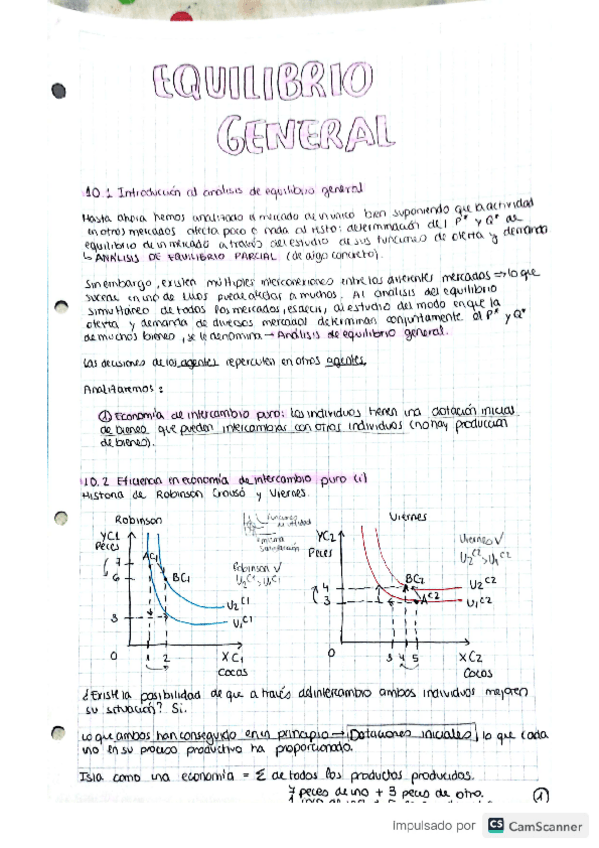 EQUILIBRIO
GENERAL
10.1 Introducción al análisis de equilibrio general
Hasta ahora hemos analizado el mercado de un único bien suponiendo que la actividad
en otros mercados afecta poco o nada al resto: determinación del P* y Q* de
equilibrio de un mercado a través del estudio de sus funciones de oferta y demanda
↳ ANÁLISIS DE EQUILIBRIO PARCIAL (de algo concreto).
Sin embargo, existen múltiples interconexiones entre los diferentes mercados ⇒ lo que
sucede en uno de ellos puede afectar a muchos. Al análisis del equilibrio
simultáneo de todos los mercados, es decir, al estudio del modo en que la
oferta y demanda de diversos mercados determinan conjuntamente el P* y Q*
de muchos bienes, se le denomina → Análisis de equilibrio general.
Las decisiones de los agentes repercuten en otros agentes.
Analizaremos:
① Economía de intercambio puro: los individuos tienen una dotación inicial
de bienes que pueden intercambiar con otros individuos (no hay producción
de bienes).
10.2 Eficiencia en economía de intercambio puro (i)
Historia de Robinson Crousó y Viernes.
Robinson
YC1
Peces
7
6
3
0
1
2
AC1
BC1
U2C1
U1C1
XC1
Cocas
Robinson ✓
U2C1>U1C1
Funciones
de utilidad
satisfacción
Viernes
YC2
Peces
4
3
0
3 4 5
BC2
AC2
U2C2
U1C2
XC2
Cocos
Viernes ✓
U2C2>U1C2
¿Existe la posibilidad de que a través del intercambio ambos individuos mejoren
su situación? Sí.
Lo que ambos han conseguido en un principio → Dotaciones iniciales, lo que cada
uno en su proceso productivo ha proporcionado.
Isla como una economía = Σ de todos los productos producidos.
7 peces de uno + 3 peces de otro.
①
Impulsado por CS CamScanner